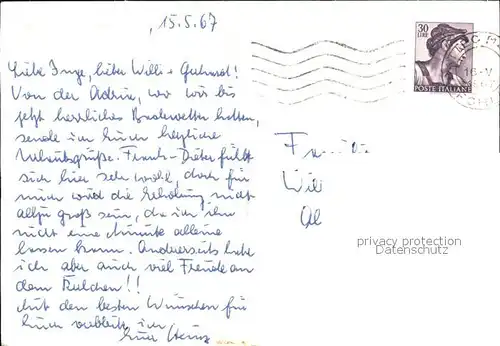 15.5.67
Liebe Inge, lieber Willi + Gerhard!
Von der Adria, wo wir bis
jetzt herrliches Badewetter hatten,
sende ich Euch herzliche
Urlaubsgrüße. Frank-Dieter fühlt
sich hier sehr wohl, doch für
mich wird die Erholung nicht
allzu groß sein, da ich ihn
nicht eine Minute alleine
lassen kann. Andererseits habe
ich aber auch viel Freude an
dem Kerlchen!!
Mit den besten Wünschen für
Euch verbleibe ich
Euer Heinz
30
LIRE
POSTE ITALIANE
16-V
Fa
Wil
privacy protection
Datenschutz